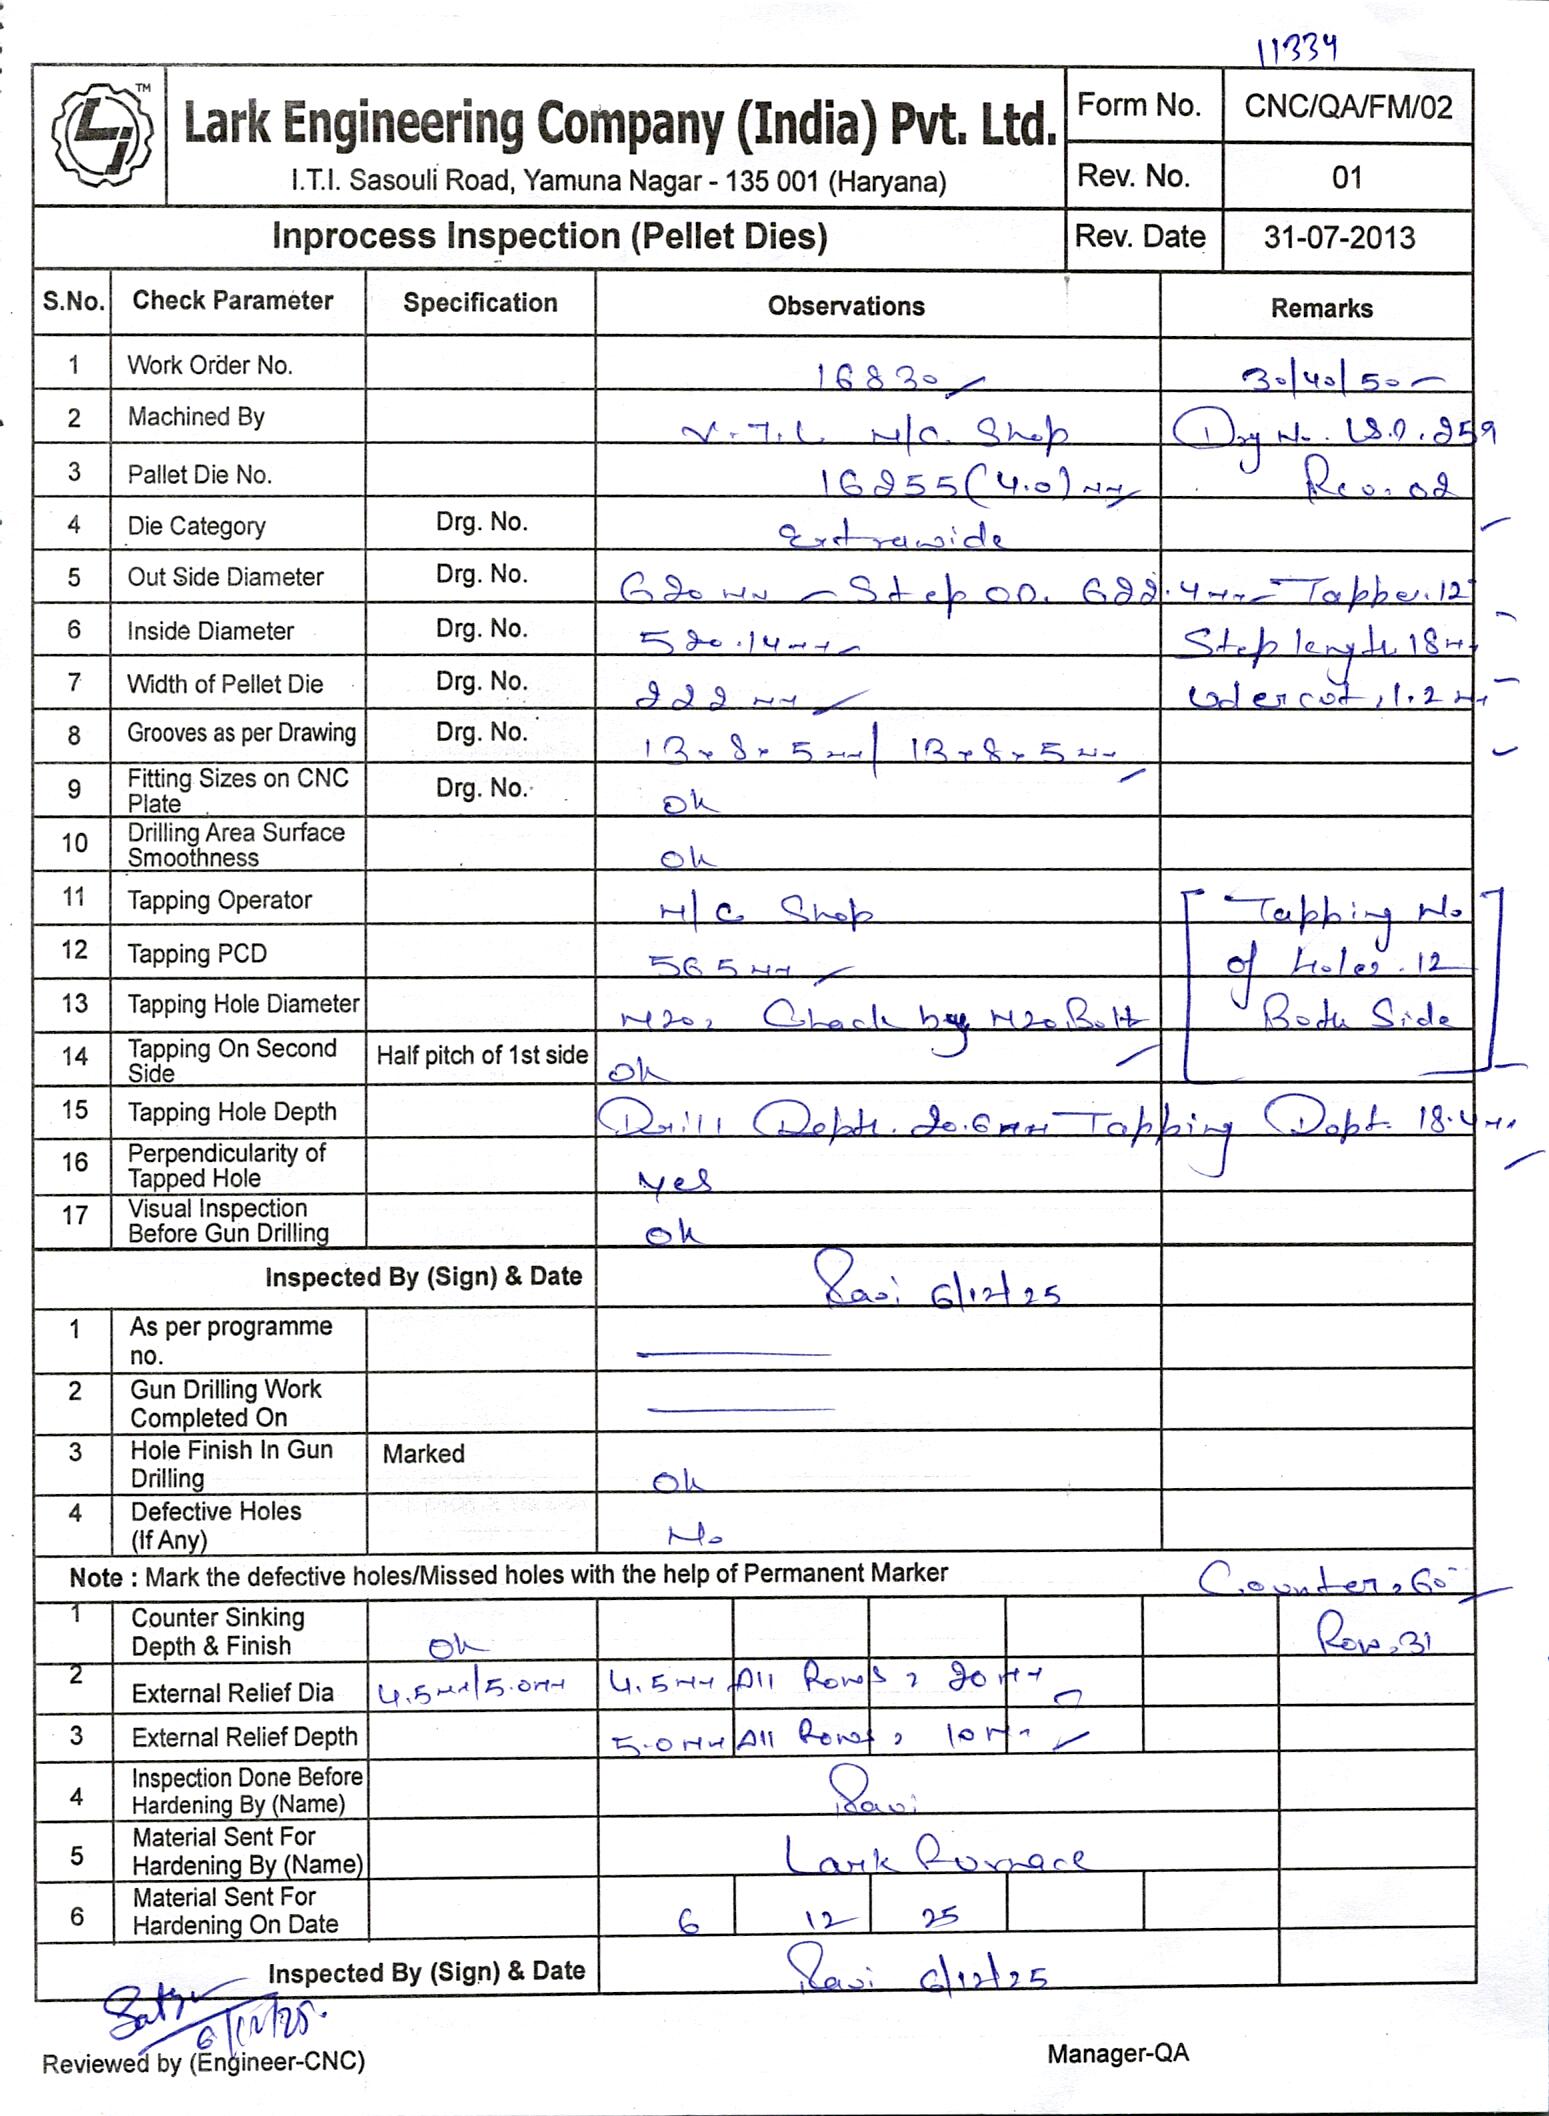 11334
TM
Lark Engineering Company (India) Pvt. Ltd.
I.T.I. Sasouli Road, Yamuna Nagar - 135 001 (Haryana)
Form No. CNC/QA/FM/02
Rev. No. 01
Inprocess Inspection (Pellet Dies)
Rev. Date 31-07-2013
S.No. Check Parameter Specification Observations Remarks
1 Work Order No. 16830 30/40/50
2 Machined By V.T.L M/C. Shop Drg No. 259
3 Pallet Die No. 16255 (4.0) mm Rev. 02
4 Die Category Drg. No. Extrawide
5 Out Side Diameter Drg. No. 620 mm - Step OD. 622.4 mm - Tapper. 12
6 Inside Diameter Drg. No. 520.14 mm Step length 18 mm
7 Width of Pellet Die Drg. No. 222 mm Udercut, 1.2 mm
8 Grooves as per Drawing Drg. No. 13 x 8 x 5 mm / 13 x 8 x 5 mm
9 Fitting Sizes on CNC Plate Drg. No. ok
10 Drilling Area Surface Smoothness ok
11 Tapping Operator M/C Shop Tapping No
12 Tapping PCD 565 mm of Holes. 12
13 Tapping Hole Diameter M20, Check by M20 Bolt Both Side
14 Tapping On Second Side Half pitch of 1st side ok
15 Tapping Hole Depth Drill Depth. 20.6 mm Tapping Dept. 18.4 mm
16 Perpendicularity of Tapped Hole yes
17 Visual Inspection Before Gun Drilling ok
Inspected By (Sign) & Date Ravi 6/12/25
1 As per programme no.
2 Gun Drilling Work Completed On
3 Hole Finish In Gun Drilling Marked ok
4 Defective Holes (If Any) No
Note : Mark the defective holes/Missed holes with the help of Permanent Marker Counter, 60
1 Counter Sinking Depth & Finish ok Row, 31
2 External Relief Dia 4.5 mm/5.0 mm 4.5 mm All Rows, 20 mm
3 External Relief Depth 5.0 mm All Rows, 10 mm
4 Inspection Done Before Hardening By (Name) Ravi
5 Material Sent For Hardening By (Name) Lark Furnace
6 Material Sent For Hardening On Date 6 12 25
Inspected By (Sign) & Date Ravi 6/12/25
6/12/25.
Reviewed by (Engineer-CNC) Manager-QA